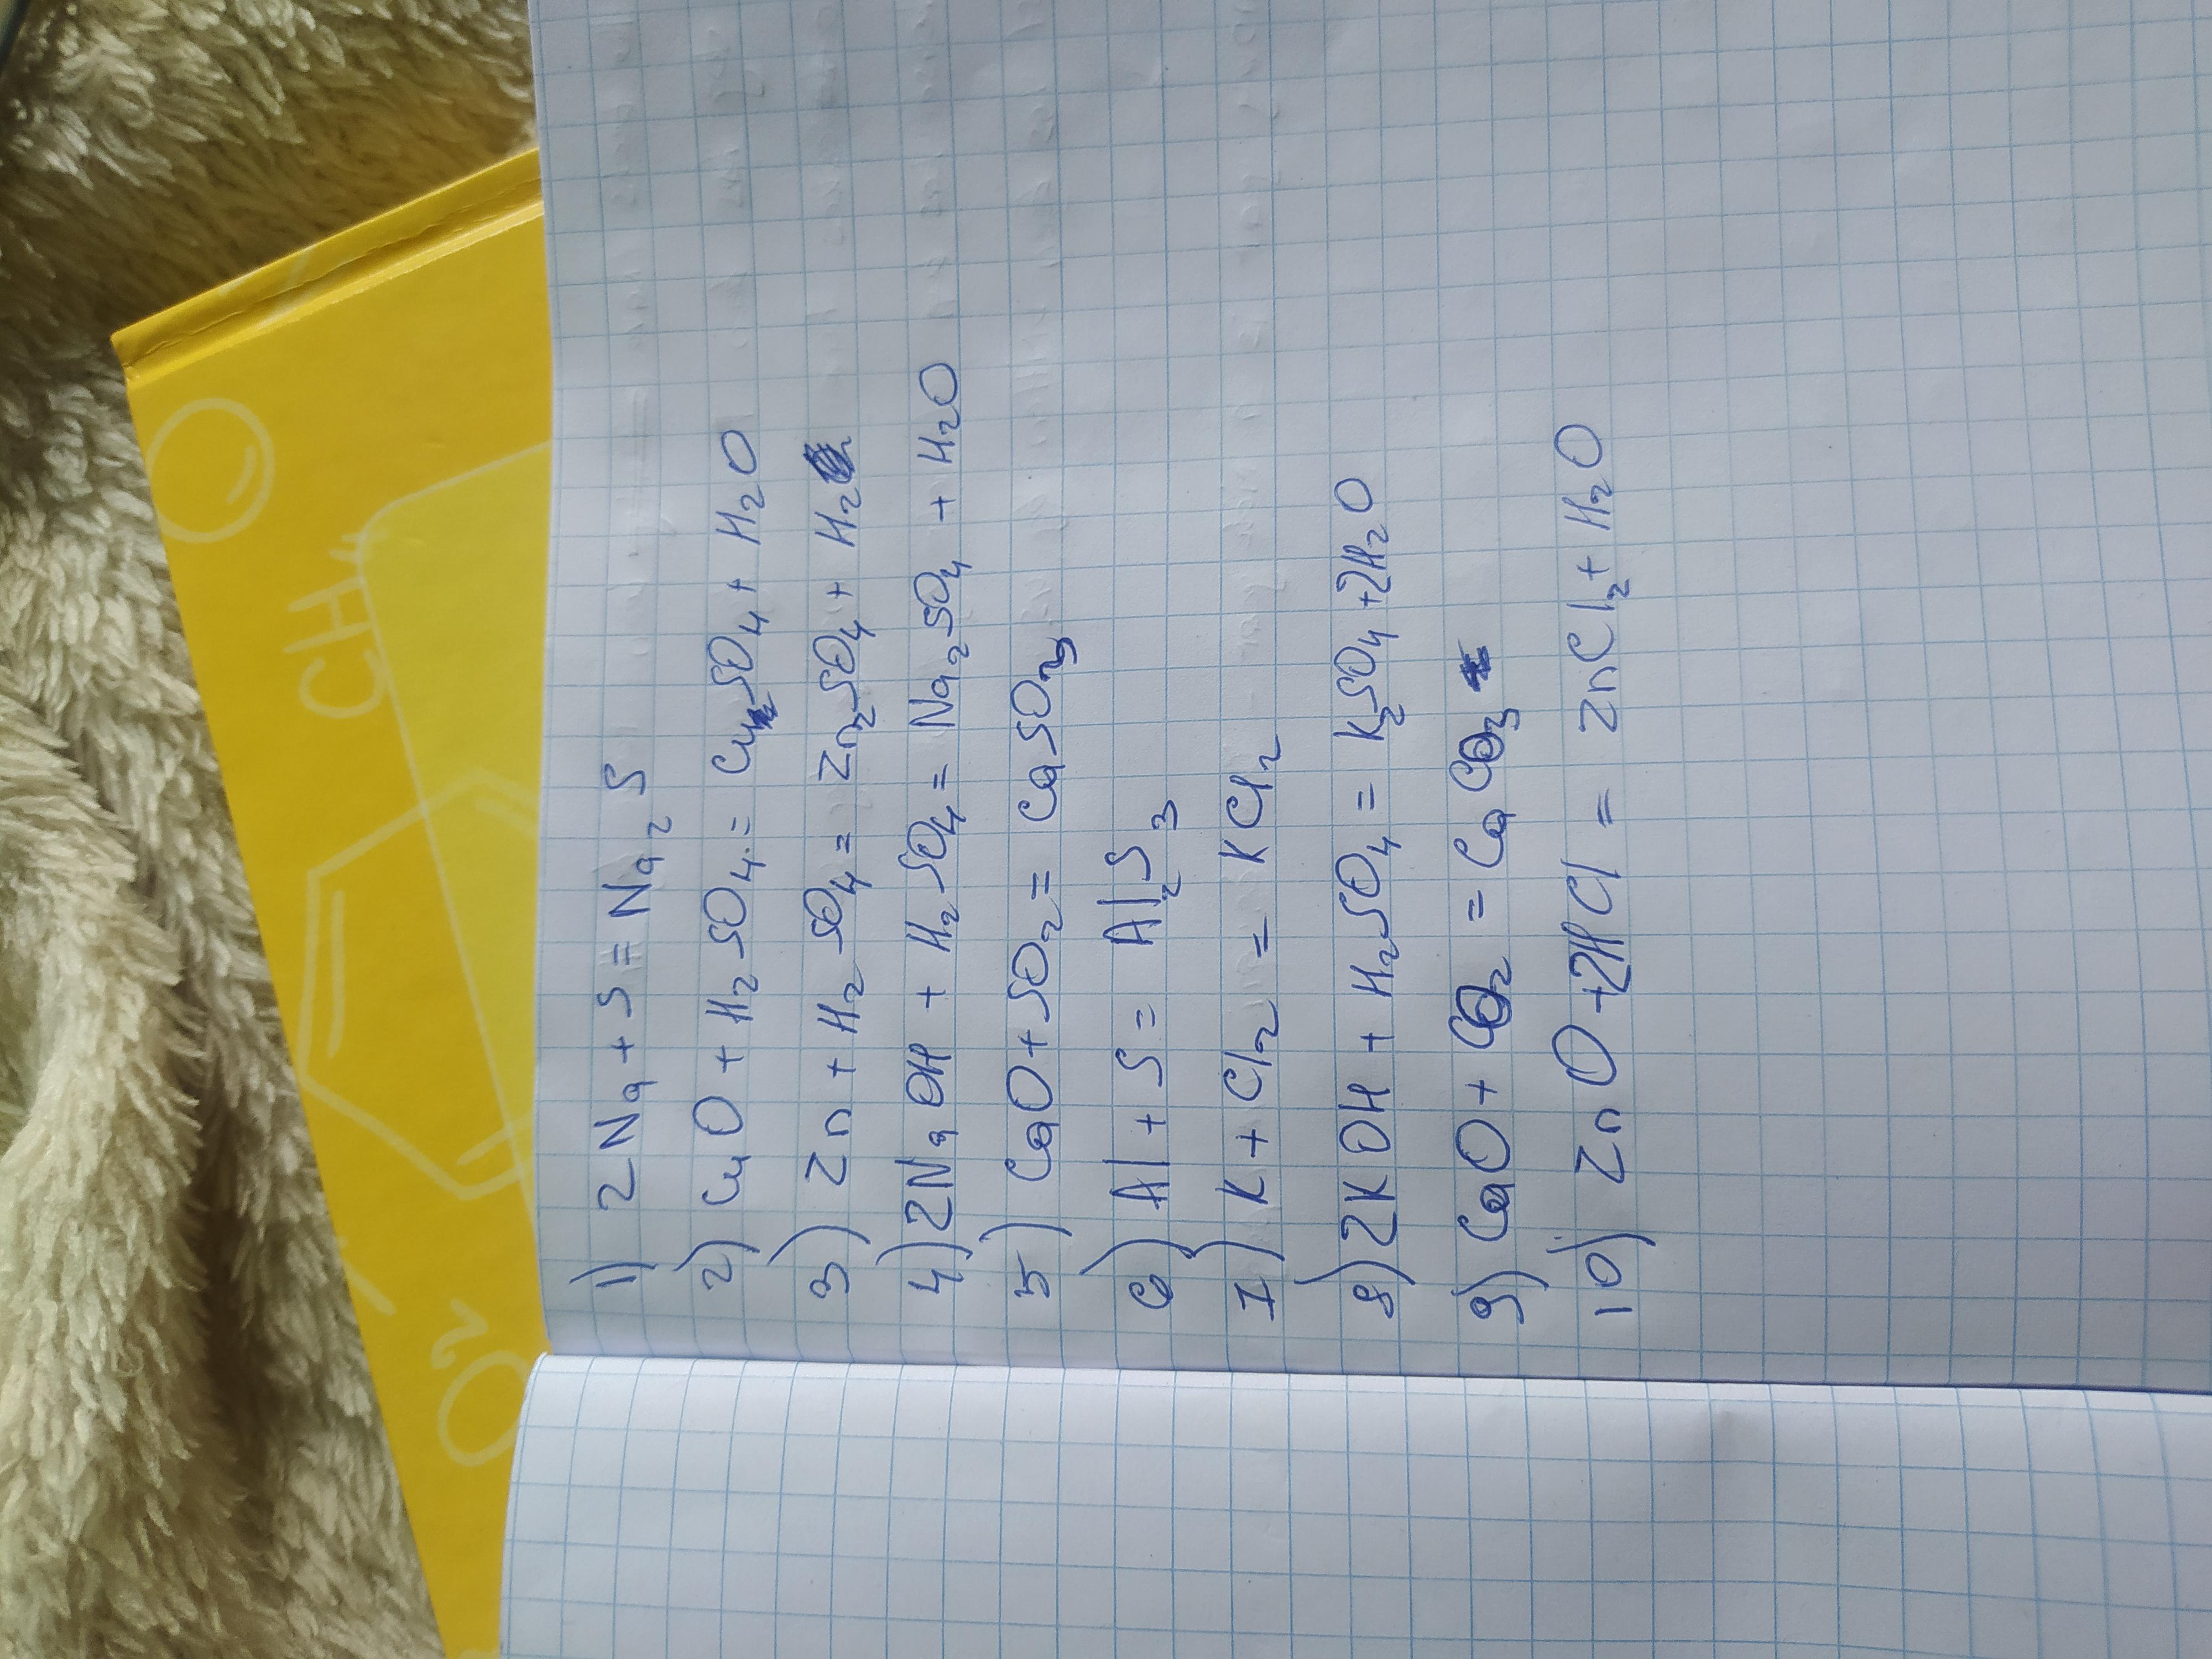 1) 2Na + S = Na₂S
2) CuO + H₂SO₄ = CuSO₄ + H₂O
3) Zn + H₂SO₄ = Zn₂SO₄ + H₂
4) 2NaOH + H₂SO₄ = Na₂SO₄ + H₂O
5) CaO + SO₂ = CaSO₃
6) Al + S = Al₂S₃
7) K + Cl₂ = KCl₂
8) 2KOH + H₂SO₄ = K₂SO₄ + 2H₂O
9) CaO + CO₂ = CaCO₃
10) ZnO + 2HCl = ZnCl₂ + H₂O
O₂
CH₄